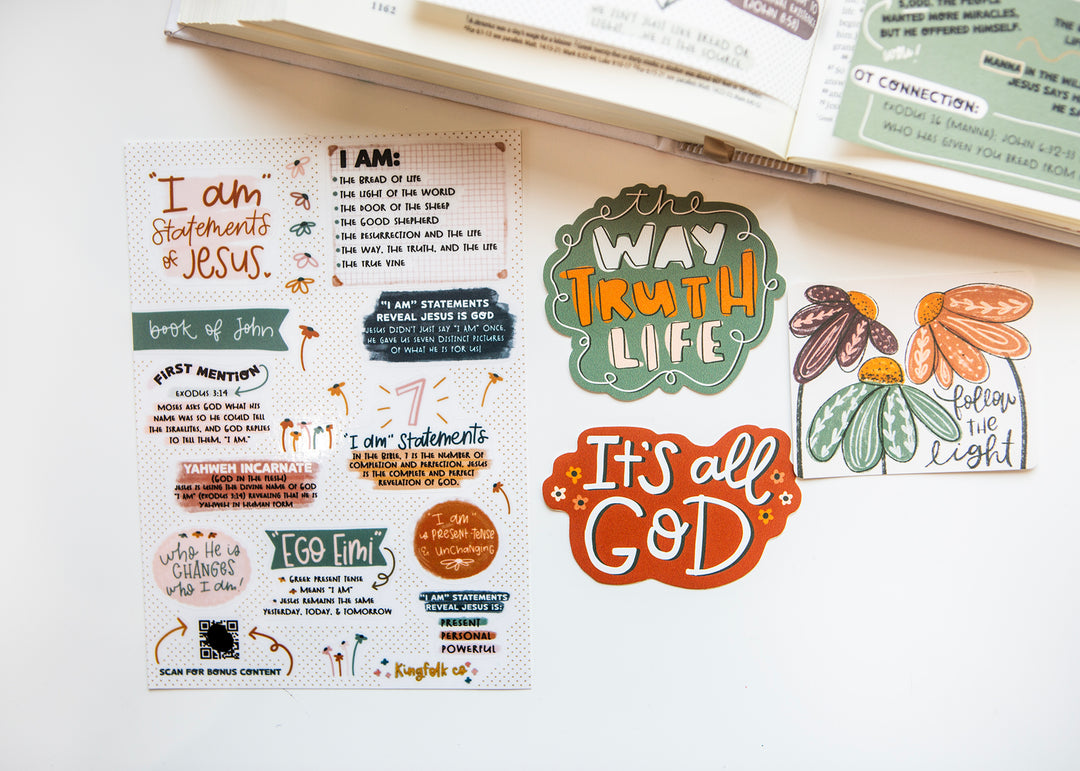 1162
HE ISN'T JUST LIKE BREAD OR
LIGHT... HE IS THE SOURCE.
(JOHN 8:58)
5,000, THE PEOPLE
WANTED MORE MIRACLES,
BUT HE OFFERED HIMSELF.
MANNA IN THE
JESUS SAYS
OT CONNECTION:
EXODUS 16 (MANNA); JOHN 6:32-33
WHO HAS GIVEN YOU BREAD FROM
"I am"
Statements
of Jesus.
I AM:
• THE BREAD OF LIFE
• THE LIGHT OF THE WORLD
• THE DOOR OF THE SHEEP
• THE GOOD SHEPHERD
• THE RESURRECTION AND THE LIFE
• THE WAY, THE TRUTH, AND THE LIFE
• THE TRUE VINE
book of John
"I AM" STATEMENTS
REVEAL JESUS IS GOD
JESUS DIDN'T JUST SAY "I AM" ONCE,
HE GAVE US SEVEN DISTINCT PICTURES
OF WHAT HE IS FOR US!
FIRST MENTION
EXODUS 3:14
MOSES ASKS GOD WHAT HIS
NAME WAS SO HE COULD TELL
THE ISRAELITES, AND GOD REPLIES
TO TELL THEM, "I AM."
7
"I am" Statements
IN THE BIBLE, 7 IS THE NUMBER OF
COMPLETION AND PERFECTION, JESUS
IS THE COMPLETE AND PERFECT
REVELATION OF GOD.
YAHWEH INCARNATE
(GOD IN THE FLESH)
JESUS IS USING THE DIVINE NAME OF GOD
"I AM" (EXODUS 3:14) REVEALING THAT HE IS
YAHWEH IN HUMAN FORM
who He is
CHANGES
who I am!
"EGO Eimi"
GREEK PRESENT TENSE
MEANS "I AM"
JESUS REMAINS THE SAME
YESTERDAY, TODAY, & TOMORROW
"I am"
is PRESENT TENSE
& UNCHANGING
"I AM" STATEMENTS
REVEAL JESUS IS:
PRESENT
PERSONAL
POWERFUL
SCAN FOR BONUS CONTENT
Kingfolk co
the
WAY
TRUTH
LIFE
It's all
GOD
follow
THE
light